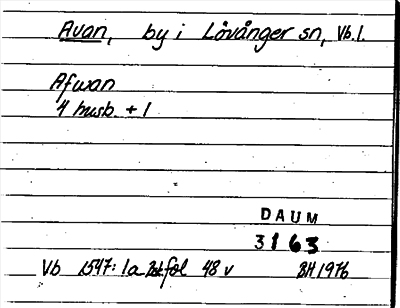 Avan, by i Lövånger sn, Vb.l.
Afwan
4 husb. + 1
DAUM
3163
Vb 1547:1a fol 48 v BH 1976